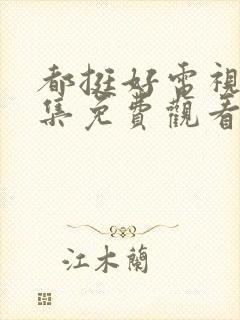 都挺好電視
集免費觀看
江木蘭